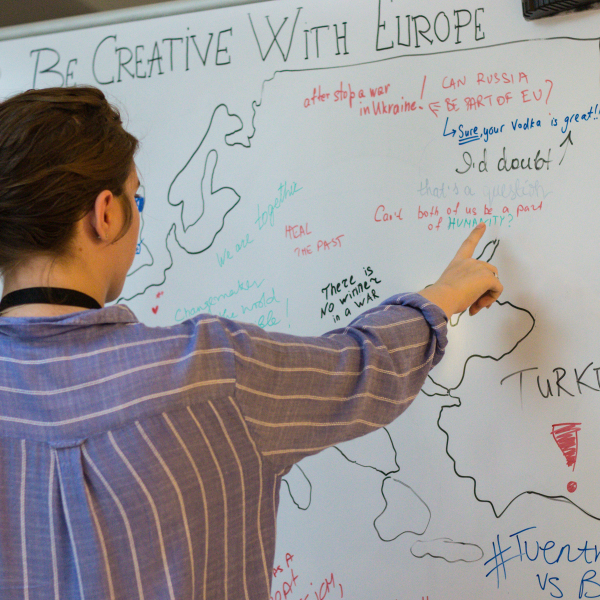 BE CREATIVE WITH EUROPE
after stop a war
in Ukraine!
CAN RUSSIA
BE PART OF EU?
Sure, your Vodka is great!!
I'd doubt
that's a question
Can both of us be a part
of HUMANITY?
we are together
HEAL
THE PAST
THERE IS
NO WINNER
in a WAR
Changemaker
world
TURK
!
VS